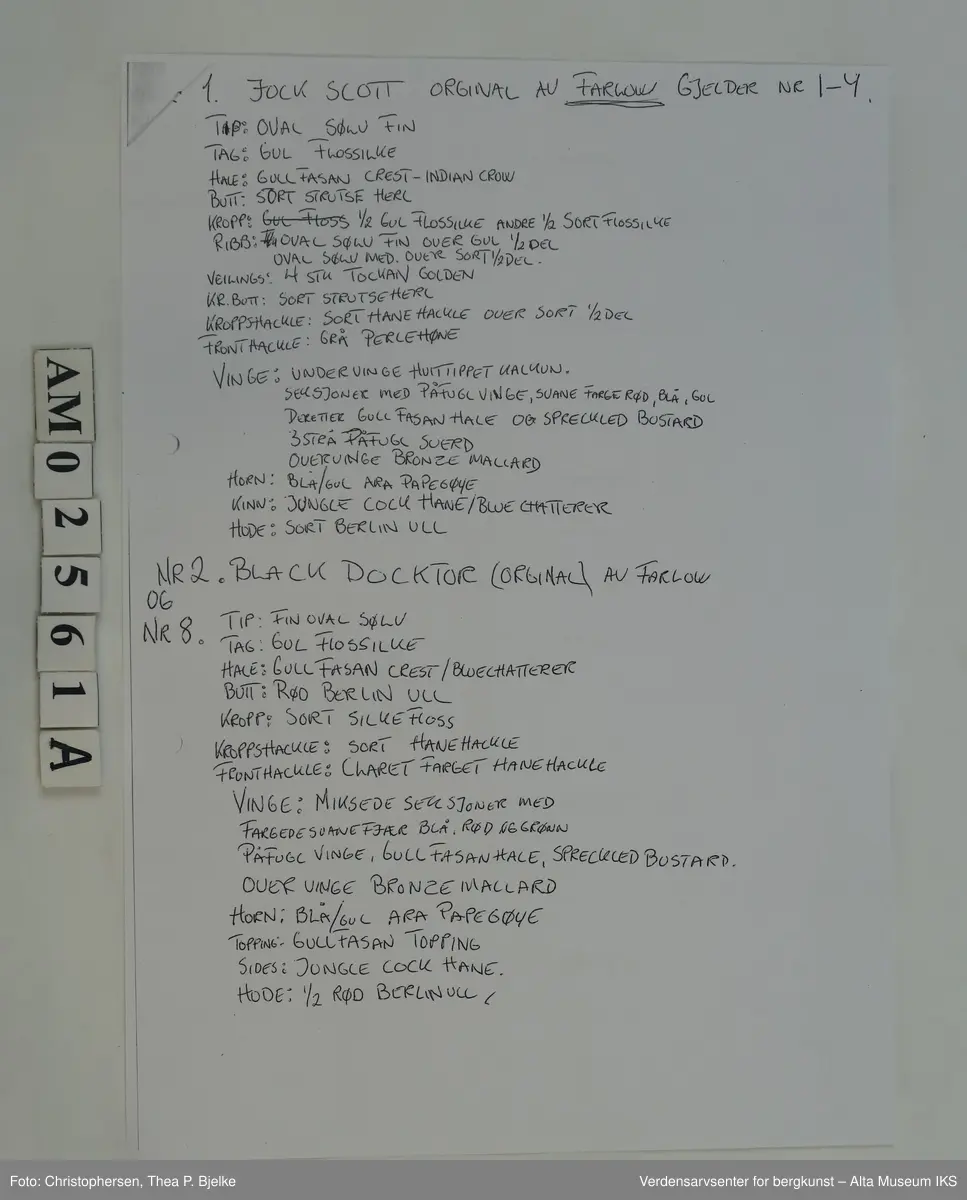 1. JOCK SCOTT ORGINAL AV FARLOW GJELDER NR 1-4.
TIP: OVAL SØLV FIN
TAG: GUL FLOSSILKE
HALE: GULL FASAN CREST-INDIAN CROW
BUTT: SORT STRUTSE HERL
KROPP: GUL FLOSS 1/2 GUL FLOSSILKE ANDRE 1/2 SORT FLOSSILKE
RIBB: OVAL SØLV FIN OVER GUL 1/2 DEL
OVAL SØLV MED. OVER SORT 1/2 DEL.
VEILINGS: 4 STK TOCKAN GOLDEN
KR. BUTT: SORT STRUTSEHERL
KROPPSHACKLE: SORT HANEHACKLE OVER SORT 1/2 DEL
FRONTHACKLE: GRÅ PERLEHØNE
VINGE: UNDERVINGE HVITTIPPET KALKUN.
SEKSJONER MED PÅFUGL VINGE, SVANE FARGE RØD, BLÅ, GUL
DERETTER GULL FASAN HALE OG SPRECKLED BUSTARD
3 STRÅ PÅFUGL SVERD
OVERVINGE BRONZE MALLARD
HORN: BLÅ/GUL ARA PAPEGØYE
KINN: JUNGLE COCK HANE/BLUE CHATTERER
HODE: SORT BERLIN ULL
NR 2. BLACK DOCKTOR (ORGINAL) AV FARLOW
OG
NR 8.
TIP: FIN OVAL SØLV
TAG: GUL FLOSSILKE
HALE: GULL FASAN CREST/BLUECHATTERER
BUTT: RØD BERLIN ULL
KROPP: SORT SILKEFLOSS
KROPPSHACKLE: SORT HANEHACKLE
FRONTHACKLE: CLARET FARGET HANEHACKLE
VINGE: MIKSEDE SEKSJONER MED
FARGEDE SVANEFJÆR BLÅ, RØD OG GRØNN
PÅFUGL VINGE, GULL FASAN HALE, SPRECKLED BUSTARD.
OVER VINGE BRONZE MALLARD
HORN: BLÅ/GUL ARA PAPEGØYE
TOPPING:- GULLFASAN TOPPING
SIDES: JUNGLE COCK HANE.
HODE: 1/2 RØD BERLINULL
AM02561A
Foto: Christophersen, Thea P. Bjelke
Verdensarvsenter for bergkunst – Alta Museum IKS